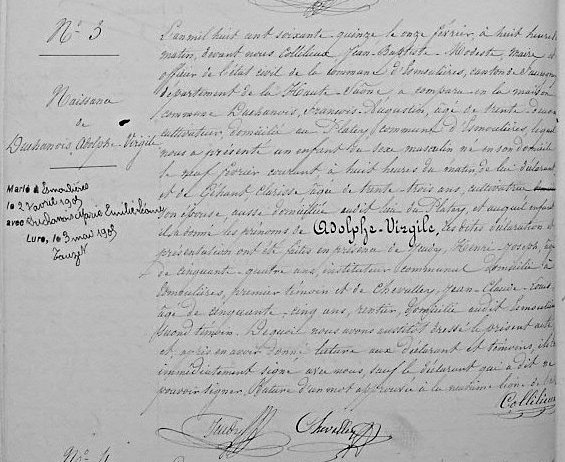 N° 3
Naissance
de
Duchanois, Adolphe-Virgile
Marié à Esmoulières
le 27 avril 1905
avec Duchanois Marie Emilie
Lure, le 3 mai 1905
L'an mil huit cent soixante-quinze le onze février, à huit heures du
matin, devant nous Collilieux Jean-Baptiste-Modeste, maire et
officier de l'état civil de la commune d'Esmoulières, canton de
département de la Haute-Saône a comparu en la maison
commune Duchanois, François-Augustin, âgé de trente-deux ans
cultivateur, domicilié au Platey, commune d'Esmoulières, lequel
nous a présenté un enfant du sexe masculin né en son domicile
le neuf février courant, à huit heures du matin de lui déclarant
et de Géhant Clarisse âgée de trente-trois ans, cultivatrice
son épouse, aussi domiciliée audit lieu du Platey, et auquel enfant
il a donné les prénoms de Adolphe-Virgile, lesdites déclaration et
présentation ont été faites en présence de Henri-Joseph, âgé
de cinquante-quatre ans, instituteur communal domicilié à
Esmoulières, premier témoin et de Chevalley, Jean-Claude-
âgé de cinquante-cinq ans, rentier, domicilié audit Esmoulières
second témoin. De quoi nous avons aussitôt dressé le présent acte
et, après en avoir donné lecture aux déclarant et témoins,
immédiatement signé avec nous, sauf le déclarant qui a dit ne
pouvoir signer. Rature d'un mot approuvée à la neuvième ligne
Collilieux
Chevalley
N° 4